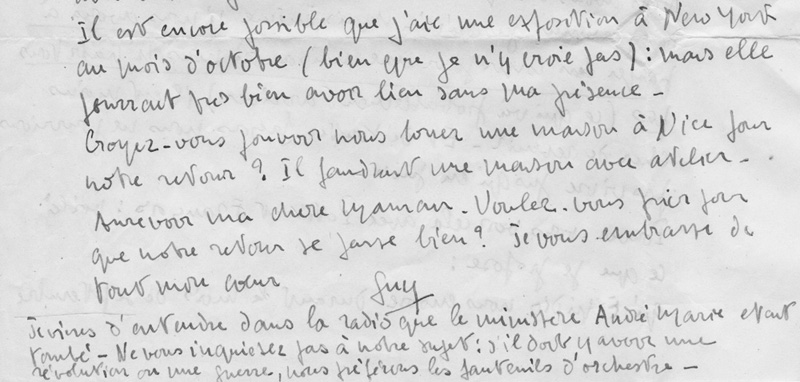 Il est encore possible que j'aie une exposition à New York
au mois d'octobre (bien que je n'y croie pas) : mais elle
pourrait très bien avoir lieu sans ma présence -
Croyez-vous pouvoir nous louer une maison à Nice pour
notre retour ? Il faudrait une maison avec atelier -
Aurevoir ma chère maman. Voulez-vous prier pour
que notre retour se passe bien ? Je vous embrasse de
tout mon cœur Guy
Je viens d'entendre dans la radio que le ministère André Marie etait
tombé - Ne vous inquietez pas à notre sujet : s'il doit y avoir une
révolution ou une guerre, nous préférons les fauteuils d'orchestre -